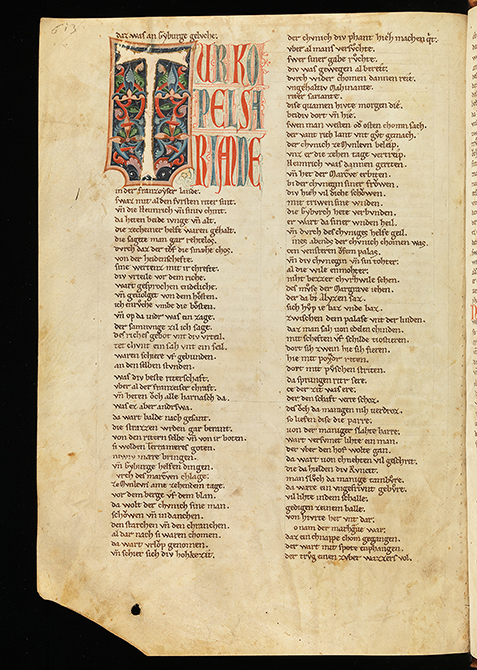 613
daz was an kyburge geluche.
TURKO
PELSA
RIANDE
in der franzoyser lande.
swaz mit alden fursten riter sint.
vn die Heinrich vn sinu chint.
da heten beide iunge vn alt.
die sagete man gar rehtelos.
durch daz der tot die smahe chos.
von der heidenschefte.
sint werten mit ir chrefte.
div vrteile vor dem riche.
wart gesprochen endeliche.
vn geuolget von dem hosten.
vn op da iidr was ein zage.
der samnunge zil ich sage.
des riches gebot vnt div vrteil.
waren schiere vf gebunden.
an den selben stunden.
was div beste riterschaft.
vber al der franzoiser chraft.
vn heten och alle harnasch da.
was ez aber anderswa.
da wart balde nach gesant.
die strazzen wrden gar berant.
von den rittern selbe vn von ir boten.
niwiv mare bringen.
vn kyburge helfen dingen.
vrch des marcven chlage.
ze Munlevn ame zehenden tage.
vor dem berge vf dem plan.
da wolt der chunich sine man.
schowen vn in danchen.
den starchen vn den chranchen.
al dar nach si waren chomen.
da wart vrlop genomen.
vn schier sich div hohkezit.
der chunich div phant hiez machen qit.
vber al mans versuchte.
swer siner gabe ruchte.
div was gewegen al bereit.
durch wider chomen dannen reit.
ritter sariante.
dise quamen hivte morgen die.
beidiv dort vn hie.
swen man westen od osten chomen sach.
der vant rich lant vnt gut gemach.
der chunich ze Munleun beleip.
vnz er die zehen tage vertreip.
Heinrich was dannen geriten.
vn het der Marcve erbiten.
bi der chunegin siner frowen.
div hiez vil diche schowen.
mit triwen sine wunden.
div kyburch hete verbunden.
er wart da siner wunden heil.
vn durch des chuniges helfe geil.
ines abendes der chunich chomen was.
cen venstern vf den palas.
vn div chunegin vn sin tohter.
al die wile enmohter.
niht bezzer churzwile sehen.
des muse der Margrave iehen.
der da bi Alyzen saz.
sich hup ie baz vnde baz.
zwischen dem palase vnt der linden.
daz man sah von edelen chinden.
mit scheften vf schilde tiostieren.
dort sih zwein hie sih fieren.
hie mit poyder riten.
dort mit puschen striten.
da sprungen riter sere.
ez der zit was ere.
der den schaft verre schoz.
des och da manegen niht verdroz.
so liefen dise die parre.
von der maneger slahte harre.
wart versumet lihte ein man.
der vber den hof wolte gan.
da wart von chnehten vil geschrit.
die da hielden div Runzit.
man sluch da manige tambure.
da wart ein vngefuoge gebure.
vil lihte indem schalle.
gedigen zeinem balle.
von hivrte her vnt dar.
o nam der marhgraue war.
daz ein chnappe chom gegangen.
der wart mit spote enphangen.
der truch einen zuber wazzers vol.